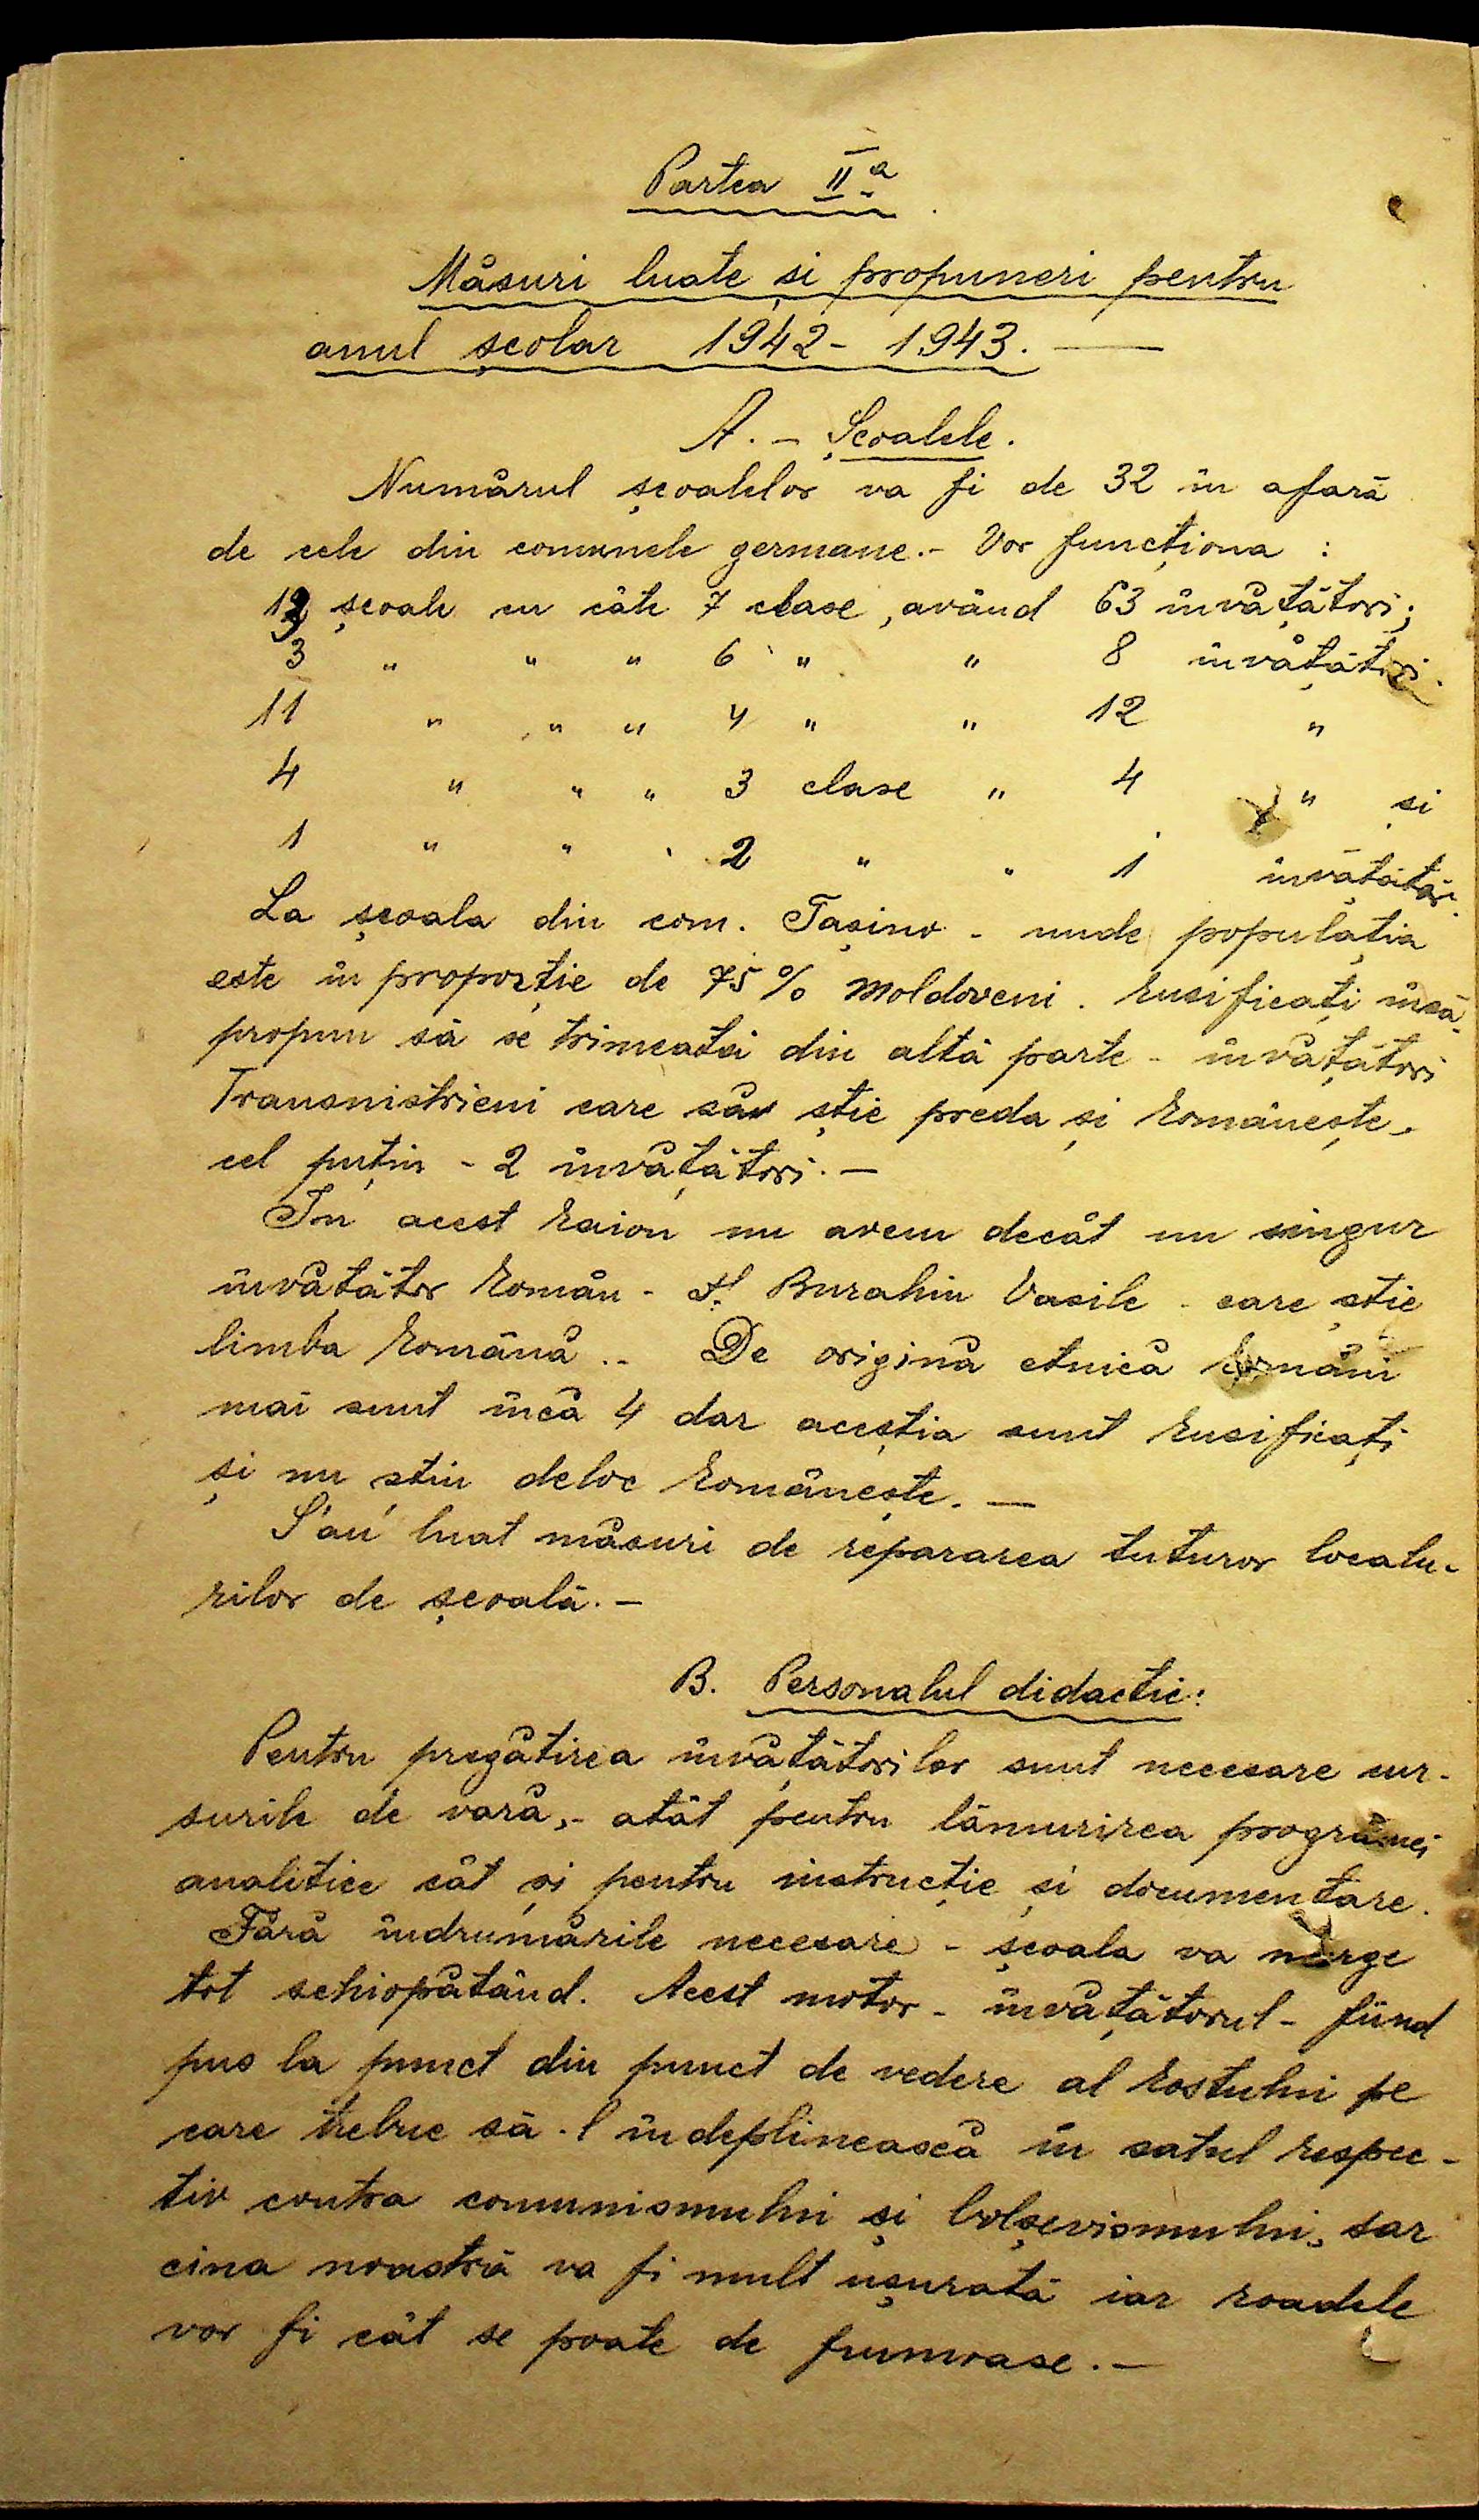 Partea II a
Măsuri luate și propuneri pentru
anul școlar 1942 - 1943. —
A. - Școalele.
Numărul școalelor va fi de 32 în afară
de cele din comunele germane. - Vor funcționa :
13 școale cu câte 7 clase, având 63 învățători;
3 " " " 6 " " 8 învățători.
11 " " " 4 " " 12 "
4 " " " 3 clase " 4 " și
1 " " " 2 " " 1 învățător.
La școala din com. Tașino - unde populația
este în proporție de 75% moldoveni. rusificați însă -
propun să se trimeată din altă parte - învățători
Transnistrieni care să știe preda și românește -
cel puțin - 2 învățători. -
In acest raion nu avem decât un singur
învățător român - dl. Burahin Vasile - care știe
limba română. - De origină etnică români
mai sunt încă 4 dar aceștia sunt rusificați
și nu stiu deloc românește. -
S'au luat măsuri de repararea tuturor localu-
rilor de școală. -
B. Personalul didactic:
Pentru pregătirea învățătorilor sunt necesare cur-
surile de vară, - atât pentru lămurirea programei
analitice cât și pentru instrucție și documentare.
Fără îndrumările necesare - școala va merge
tot schiopătând. Acest motor - învățătorul - fiind
pus la punct din punct de vedere al rostului pe
care trebue să-l îndeplinească în satul respec-
tiv contra comunismului și bolșevismului, sar
cina noastră va fi mult ușurată iar roadele
vor fi cât se poate de frumoase. -